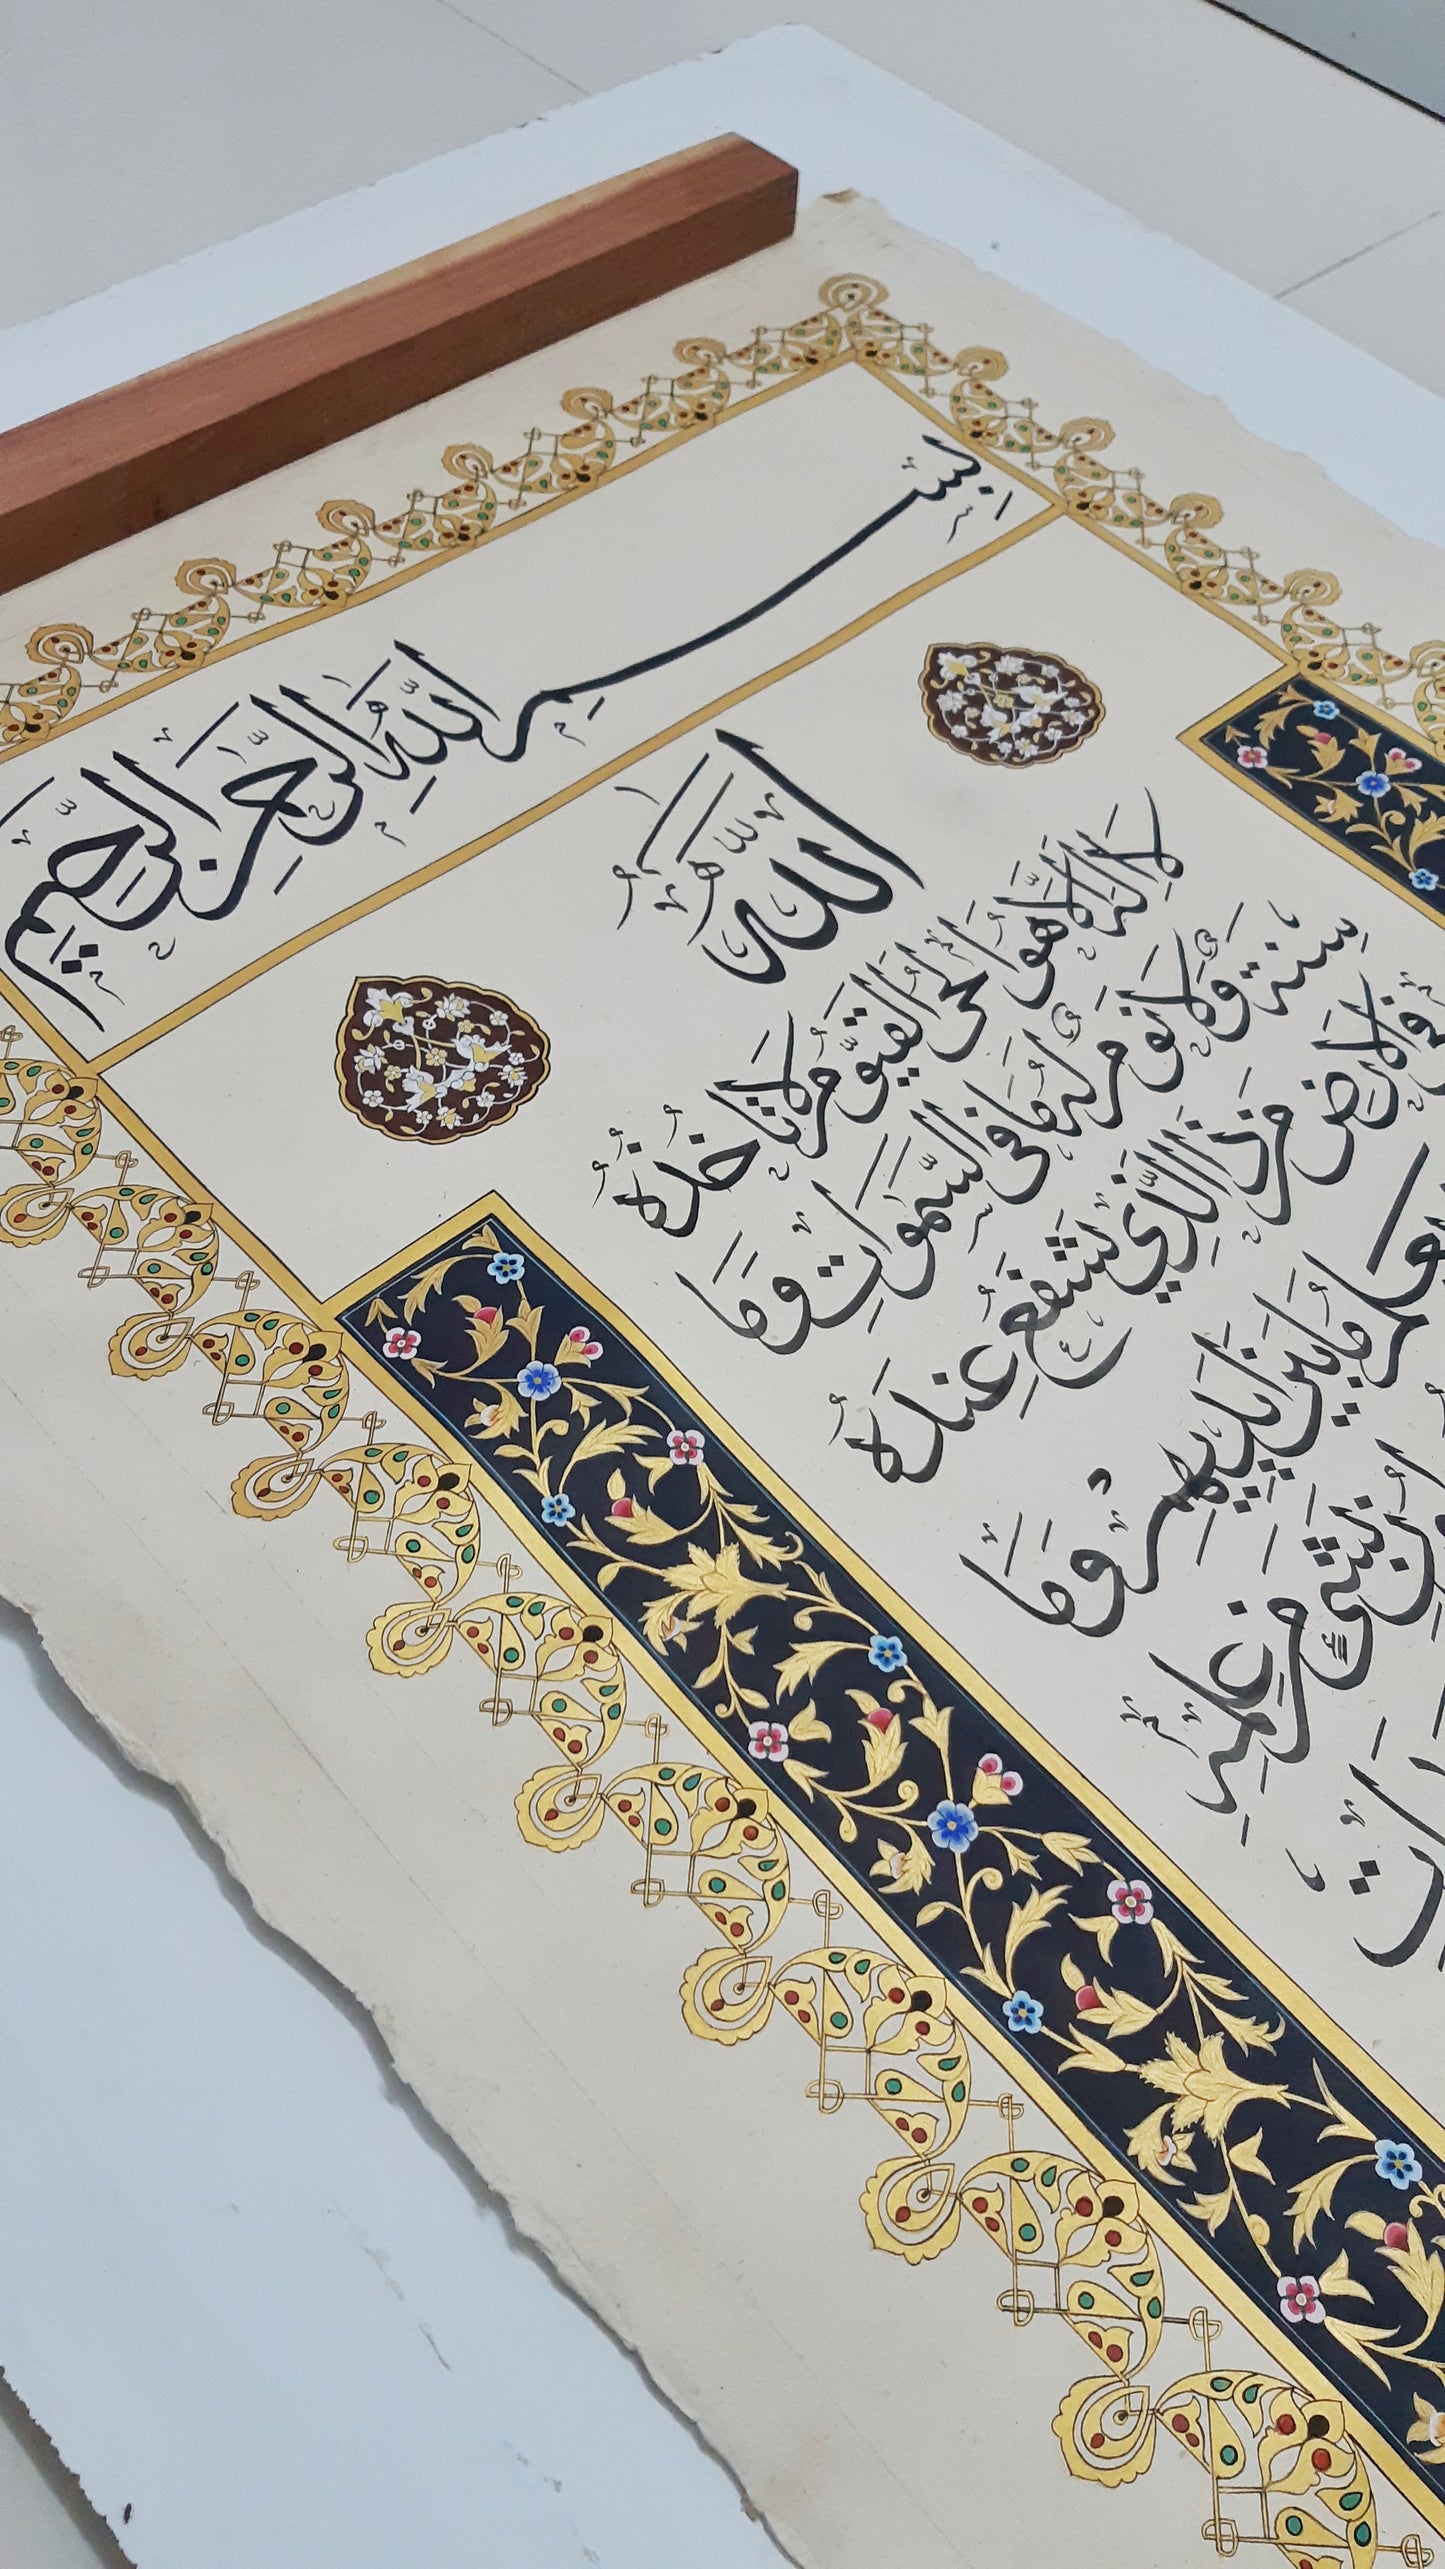 بِسْمِ اللَّهِ الرَّحْمٰنِ الرَّحِيمِ
اللَّهُ
لَا إِلٰهَ إِلَّا هُوَ الْحَيُّ الْقَيُّومُ لَا تَأْخُذُهُ
سِنَةٌ وَلَا نَوْمٌ لَهُ مَا فِي السَّمٰوَاتِ وَمَا
فِي الْأَرْضِ مَنْ ذَا الَّذِي يَشْفَعُ عِنْدَهُ
يَعْلَمُ مَا بَيْنَ أَيْدِيهِمْ وَمَا
بِشَيْءٍ مِنْ عِلْمِهِ